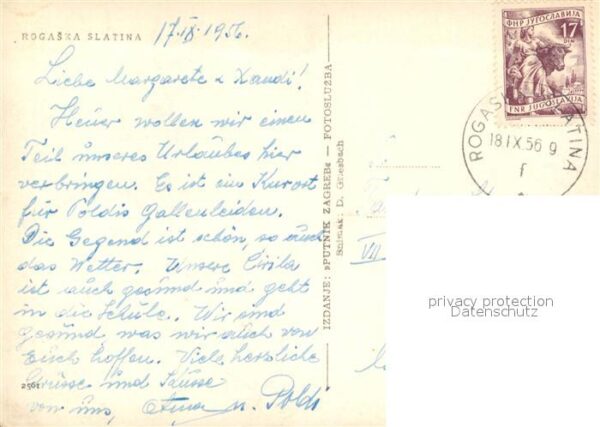 ROGAŠKA SLATINA 17.IX.1956.
Liebe Margarete u Xandi!
Heuer wollen wir einen
Teil unseres Urlaubes hier
verbringen. Es ist ein Kurort
für Poldis Gallenleiden.
Die Gegend ist schön, so auch
das Wetter. Unsere
ist auch gesund und geht
in die Schule. Wir sind
gesund was wir auch von
Euch hoffen. Viele herzliche
Grüsse und Küsse
von uns, u. Poldi
2561
IZDANJE: »PUTNIK ZAGREB« — FOTOSLUŽBA
Snimak: D. Griesbach
ФНР ЈУГОСЛАВИЈА
17
DIN
FNR JUGOSLAVIJA
ROGAŠKA SLATINA
18.IX.56 9
f
VII
privacy protection
Datenschutz